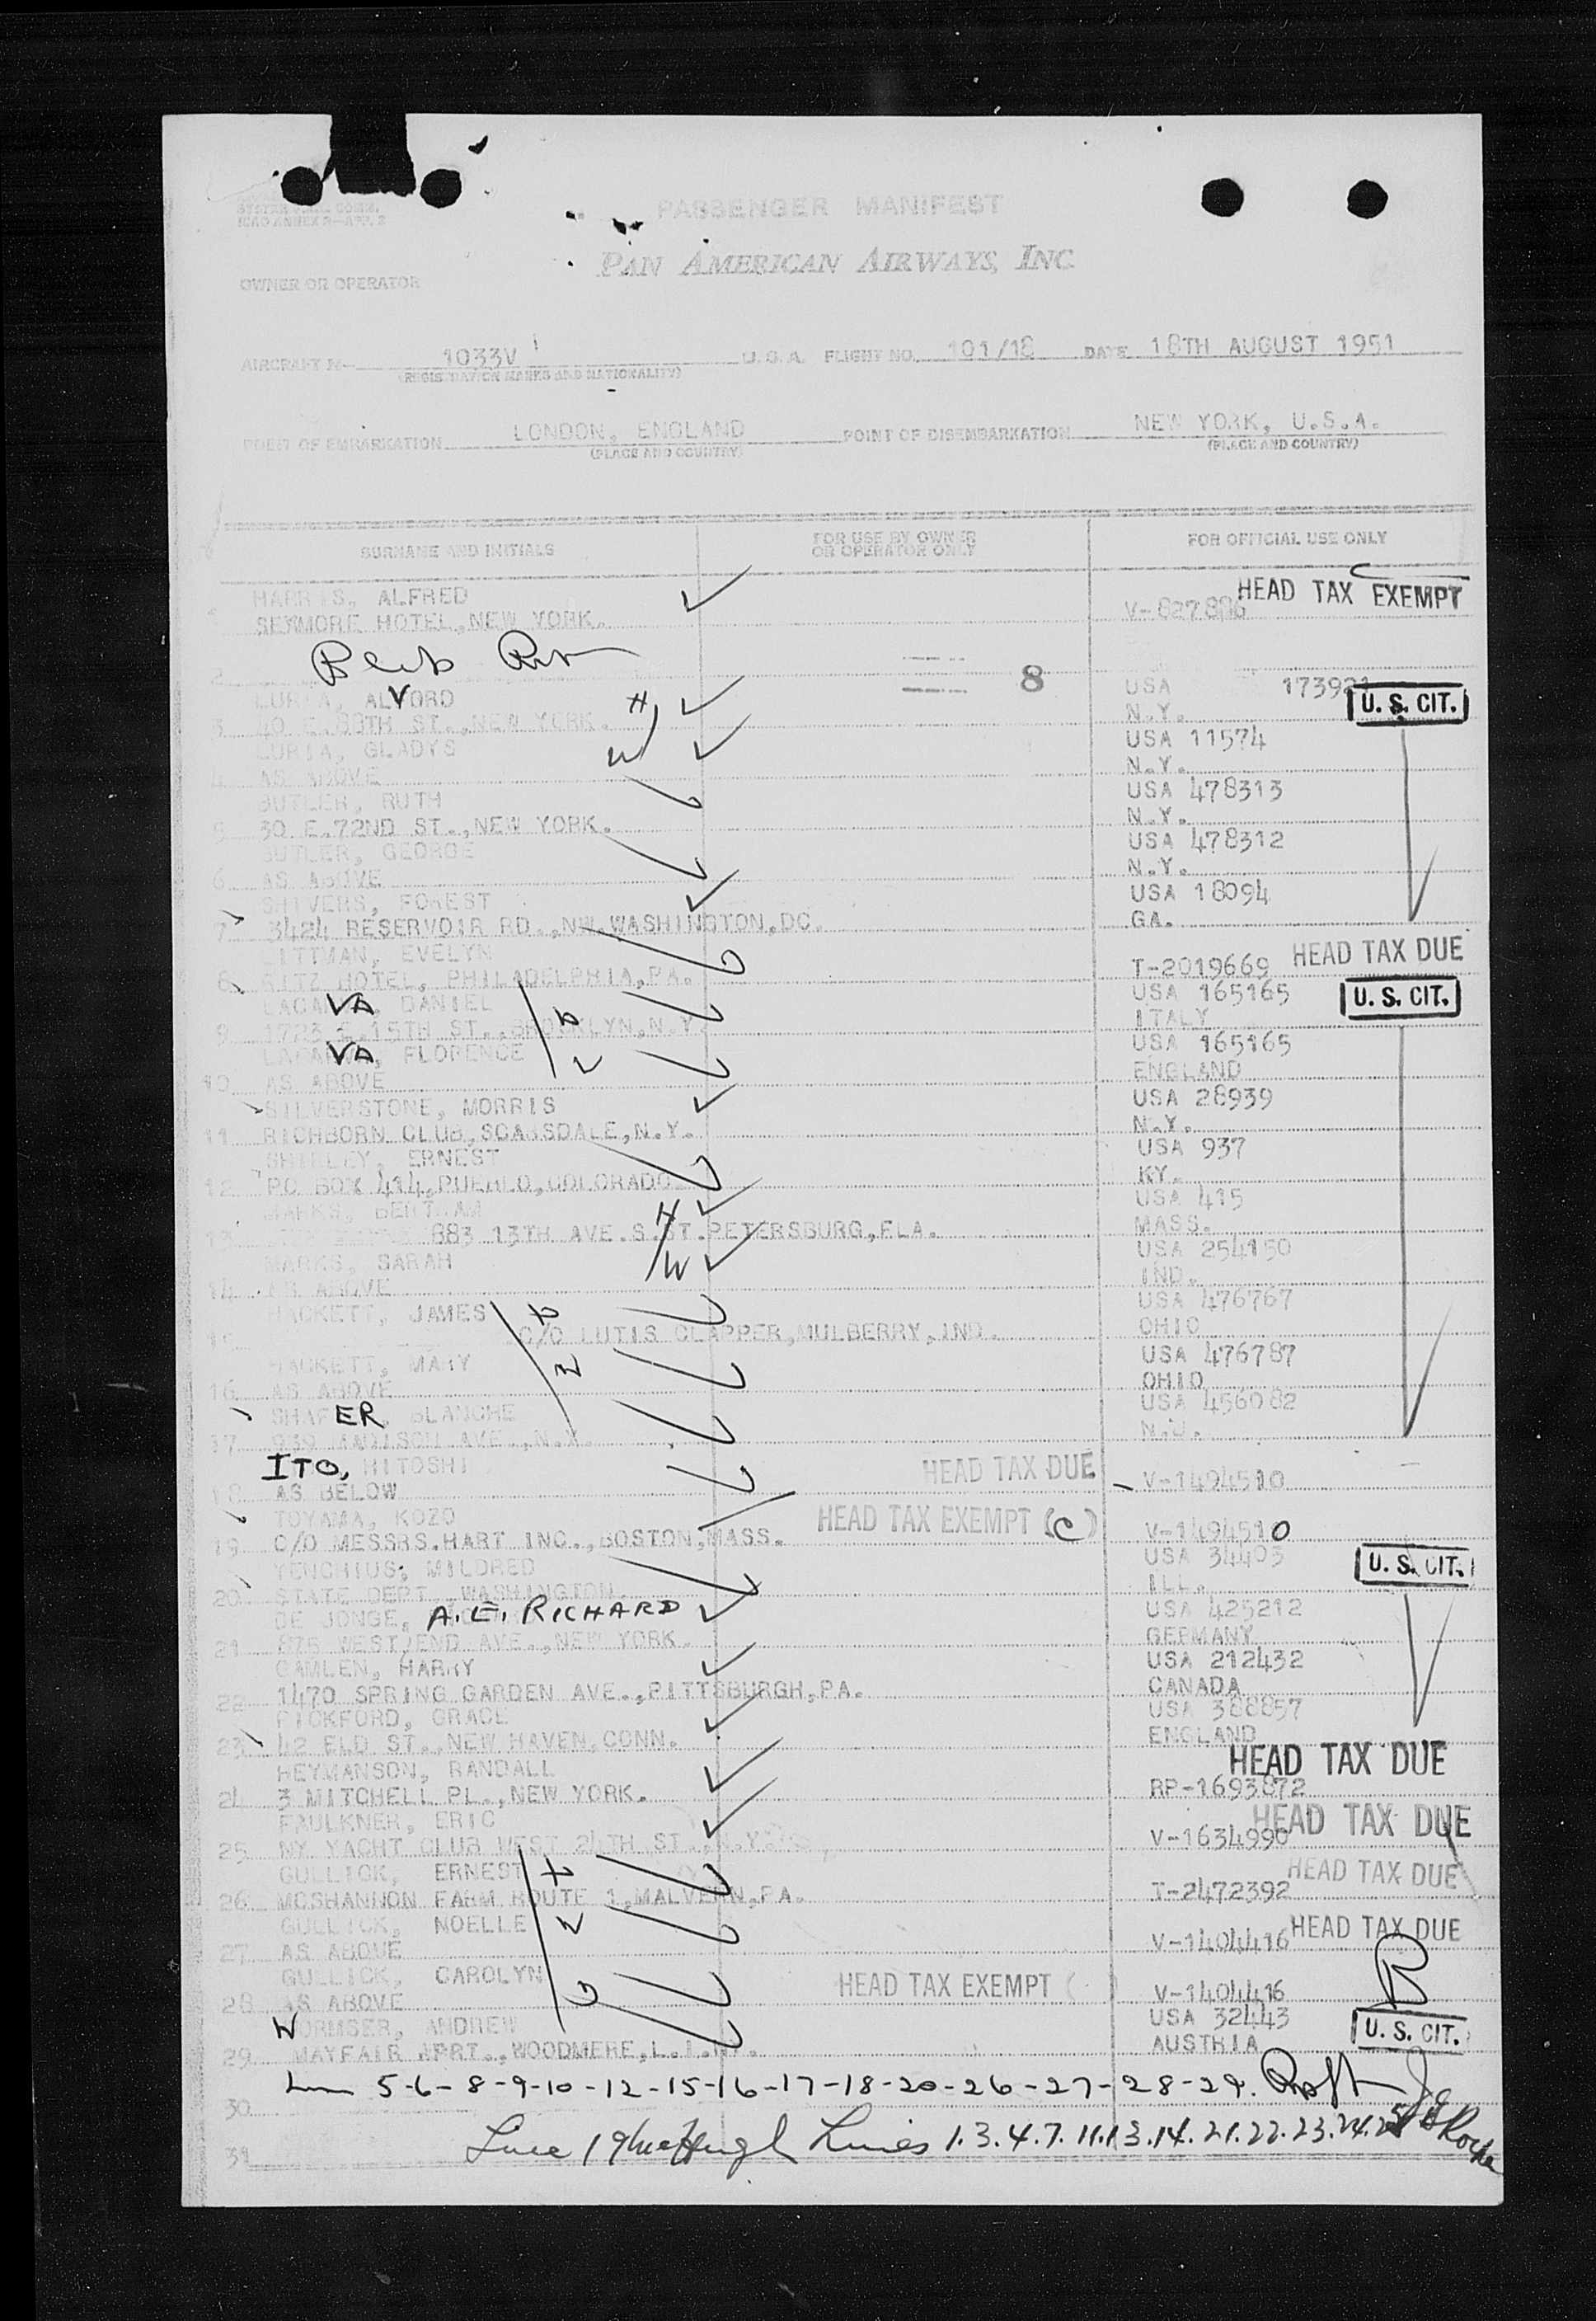 PASSENGER MANIFEST
PAN AMERICAN AIRWAYS, INC.
OWNER OR OPERATOR
AIRCRAFT N- 1033V U.S.A. FLIGHT NO. 101/18 DATE 18TH AUGUST 1951
(REGISTRATION MARKS AND NATIONALITY)
POINT OF EMBARKATION LONDON, ENGLAND POINT OF DISEMBARKATION NEW YORK, U.S.A.
(PLACE AND COUNTRY) (PLACE AND COUNTRY)
SURNAME AND INITIALS FOR USE BY OWNER OR OPERATOR ONLY FOR OFFICIAL USE ONLY
HARRIS, ALFRED HEAD TAX EXEMPT
SEYMORE HOTEL, NEW YORK. V-827886
2
8
LURIA, ALVORD H USA 173921 U. S. CIT.
3 40 E.88TH ST., NEW YORK. N.Y.
LURIA, GLADYS W USA 11574
4 AS ABOVE N.Y.
BUTLER, RUTH USA 478313
5 30 E.72ND ST., NEW YORK. N.Y.
BUTLER, GEORGE USA 478312
6 AS ABOVE N.Y.
SHIVERS, FOREST USA 18094
7 3424 RESERVOIR RD., NW.WASHINGTON,DC. GA.
LITTMAN, EVELYN HEAD TAX DUE
8 RITZ HOTEL, PHILADELPHIA,PA. T-2019669
LACAVA, DANIEL USA 165165 U. S. CIT.
9 1723 E.15TH ST., BROOKLYN, N.Y. ITALY
LACAVA, FLORENCE USA 165165
10 AS ABOVE ENGLAND
SILVERSTONE, MORRIS USA 28939
11 RICHBORN CLUB, SCARSDALE, N.Y. N.Y.
SHIRLEY, ERNEST USA 937
12 PO BOX 414,PUEBLO,COLORADO KY.
MARKS, BERTRAM H USA 415
13 883 13TH AVE.S.ST.PETERSBURG,FLA. MASS.
MARKS, SARAH W USA 254150
14 AS ABOVE IND.
HACKETT, JAMES USA 476767
15 C/O LUTIS CLAPPER,MULBERRY,IND. OHIO
HACKETT, MARY USA 476787
16 AS ABOVE OHIO
SHAFER, BLANCHE USA 456082
17 939 MADISON AVE., N.Y. N.J.
ITO, HITOSHI HEAD TAX DUE V-1494510
18 AS BELOW
TOYAMA, KOZO HEAD TAX EXEMPT (C) V-1494510
19 C/O MESSRS.HART INC.,BOSTON,MASS.
TENCHIUS, MILDRED USA 34403 U. S. CIT.
20 STATE DEPT. WASHINGTON. ILL.
DE JONGE, A.E. RICHARD USA 425212
21 875 WEST END AVE., NEW YORK. GERMANY
CAMLEN, HARRY USA 212432
22 1470 SPRING GARDEN AVE., PITTSBURGH,PA. CANADA
PICKFORD, GRACE USA 388857
23 42 ELD ST., NEW HAVEN, CONN. ENGLAND
HEYMANSON, RANDALL HEAD TAX DUE
24 3 MITCHELL PL., NEW YORK. RP-1693872
FAULKNER, ERIC HEAD TAX DUE
25 NY YACHT CLUB WEST 24TH ST., N.Y. V-1634990
GULLICK, ERNEST HEAD TAX DUE
26 MOSHANNON FARM ROUTE 1,MALVERN,PA. T-2472392
GULLICK, NOELLE HEAD TAX DUE
27 AS ABOVE V-1404416
GULLICK, CAROLYN HEAD TAX EXEMPT ( )
28 AS ABOVE V-1404416
WORMSER, ANDREW USA 32443 U. S. CIT.
29 MAYFAIR APRT., WOODMERE, L.I. AUSTRIA
5-6-8-9-10-12-15-16-17-18-20-26-27-28-29.
30
Line 19 Lines 1.3.4.7.11.13.14.21.22.23.24.25
31